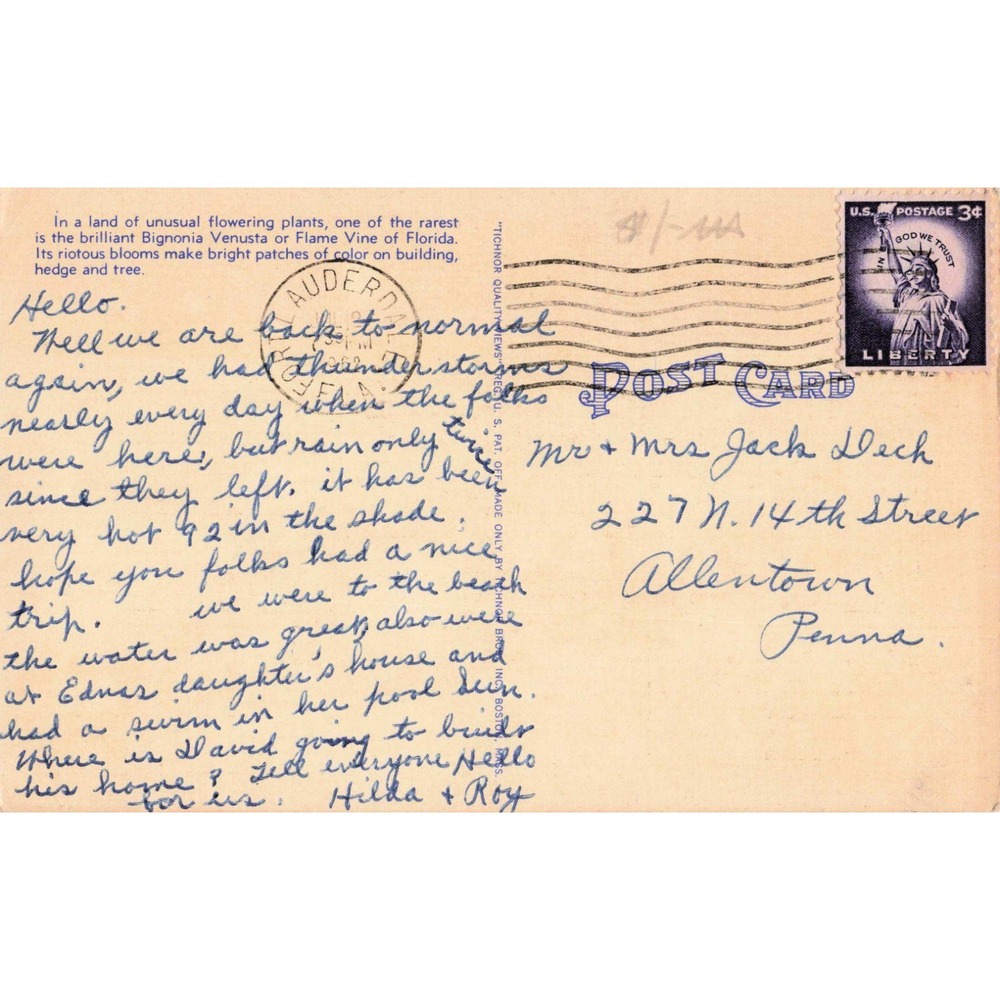 In a land of unusual flowering plants, one of the rarest
is the brilliant Bignonia Venusta or Flame Vine of Florida.
Its riotous blooms make bright patches of color on building,
hedge and tree.
Hello.
Well we are back to normal
again, we had thunder storms
nearly every day when the folks
were here, but rain only twice
since they left. it has been
very hot 92 in the shade.
hope you folks had a nice
trip. we were to the beach
the water was great, also were
at Ednas daughter's house and
had a swim in her pool Sun.
Where is David going to build
his home? Tell everyone Hello
for us. Hilda & Roy
"TICHNOR QUALITY VIEWS" REG. U. S. PAT. OFF. MADE ONLY BY TICHNOR BROS., INC., BOSTON, MASS.
FORT LAUDERDALE
PM
1962
FLA.
U.S. POSTAGE 3¢
IN GOD WE TRUST
LIBERTY
POST CARD
Mr & Mrs Jack Dech
227 N. 14th Street
Allentown
Penna.